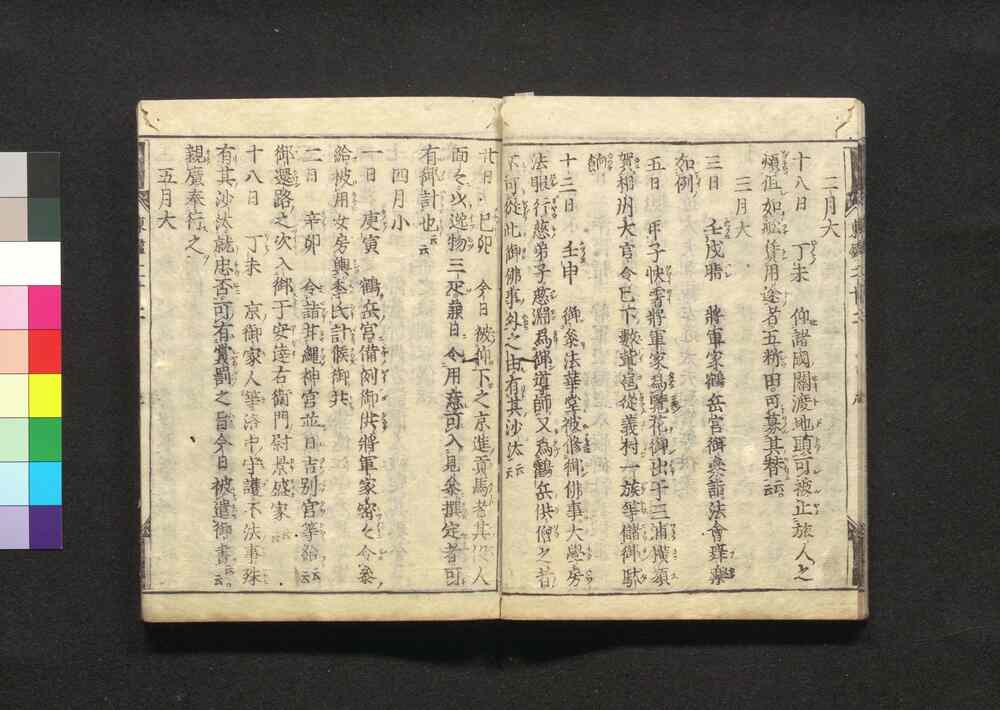 二月大
十八日 丁未 仰諸國關渡地頭可被止旅人之
煩但如船賃用途者五稱田可募其替云云
三月大
三日 壬戌晴 將軍家鶴岳宮御參詣法會舞樂
如例
五日 甲子快霽將軍家爲覽花御出于三浦横須
賀相州大官令已下數輩扈從義村一族等儲御駄
餉
十三日 壬申 御參法華堂被修御佛事大學房
法眼行慈弟子慈淵爲御導師又爲鶴岳供僧之者
不可從此御佛事外之由有其沙汰云云
廿日 己卯 今日被仰下之京進貢馬者其役人
面々以逸物三疋兼日令用意可入見參撰定者可
有御計也云云
四月小
一日 庚寅 鶴岳宮備例御供將軍家密々令參
給被用女房輿季氏計候御共
二日 辛卯 令詣甘縄神宮並日吉別宮等給云云
御還路之次入御于安達右衞門尉景盛家
十八日 丁未 京御家人等洛中守護不法事殊
有其沙汰就忠否可有賞罰之旨今日被遣御書云云
親廣奉行之
五月大